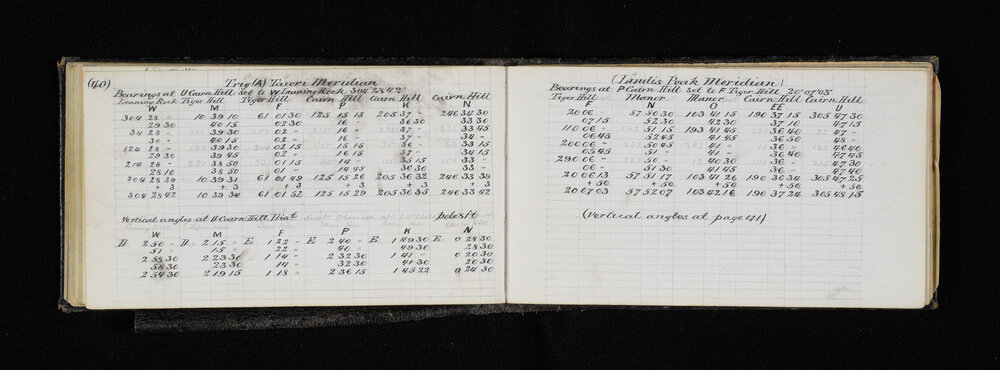 (140) Trig (A) Taieri Meridian
Bearings at U Cairn Hill set to W Leaning Rock 304 28 42
Leaning Rock Tiger Hill Tiger Hill Cairn Hill Cairn Hill Cairn Hill
W M F P K N
304 28 - 10 39 10 61 01 30 125 15 15 205 37 - 246 34 30
29 30 40 15 02 30 16 - 36 30 33 30
34 28 - 39 30 02 - 16 - 37 - 33 45
30 - 40 15 02 - 16 - 37 - 34 -
124 28 - 39 30 02 15 15 15 36 - 33 15
29 30 39 45 02 - 16 15 37 - 34 15
214 28 - 38 50 01 15 14 - 35 15 33 -
28 10 38 50 01 - 14 45 36 30 33 -
304 28 39 10 39 31 61 01 49 125 15 26 205 36 32 246 33 39
+ 3 + 3 + 3 + 3 + 3 + 3
304 28 42 10 39 34 61 01 52 125 15 29 205 36 35 246 33 42
Vertical angles at U Cairn Hill pole 8 ft
W M F P K N
D 2 50 - D 2 15 - E 1 22 - E 2 40 - E 1 49 30 E 0 28 30
51 15 - 22 - 40 - 49 30 28 30
2 58 30 2 23 30 1 14 - 2 32 30 1 41 - 0 20 30
58 30 23 30 14 - 32 30 41 30 20 30
2 54 30 2 19 15 1 18 - 2 36 15 1 45 22 0 24 30
(Lindis Peak Meridian)
Bearings at P Cairn Hill set to F Tiger Hill 20 07 03
Tiger Hill Manor Manor Cairn Hill Cairn Hill
F N O EE U
20 06 57 50 30 103 41 15 190 37 15 305 47 30
07 15 52 30 42 30 37 10 47 15
110 06 - 51 15 193 41 45 36 40 47 -
06 45 52 45 41 45 36 50 48 -
200 06 - 50 45 41 - 36 - 46 40
05 45 51 - 41 - 36 40 47 45
290 06 - 50 - 40 30 36 - 47 30
06 - 51 30 41 45 36 - 47 40
20 06 13 57 51 17 103 41 26 190 36 34 305 47 25
+ 50 + 50 + 50 + 50 + 50
20 07 03 57 52 07 103 42 16 190 37 24 305 48 15
(Vertical angles at page 171)